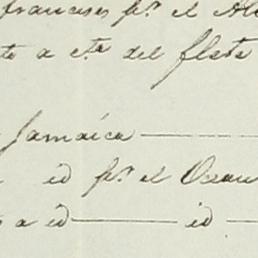 franceses pr. el Al
to a cta del flete
Jamaica
id pr. el Ocean
a id id